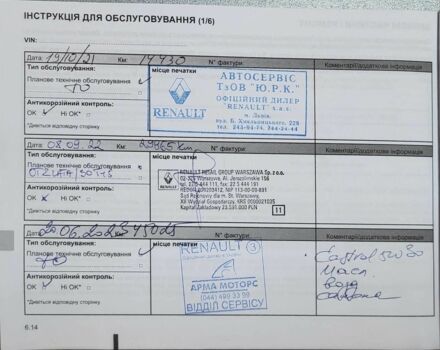 ІНСТРУКЦІЯ ДЛЯ ОБСЛУГОВУВАННЯ (1/6)
VIN:
Дата: 19/10/21 Км: 14430 N° фактури: Коментарі/додаткова інформація
Тип обслуговування: місце печатки
Планове технічне обслуговування
ТО
Антикорозійний контроль:
OK Ні OK*
*Дивіться відповідну сторінку
RENAULT
АВТОСЕРВІС
ТзОВ "Ю.Р.К."
ОФІЦІЙНИЙ ДИЛЕР
"RENAULT"
м. Львів,
вул. Б. Хмельницького, 228
тел. 243-94-74, 244-24-44
Дата: 08.09.22 Км: N° фактури: Коментарі/додаткова інформація
Тип обслуговування: місце печатки
Планове технічне обслуговування
Антикорозійний контроль:
OK Ні OK*
*Дивіться відповідну сторінку
RENAULT RETAIL GROUP WARSZAWA Sp. z o.o.
02-326 Warszawa, Al. Jerozolimskie 156
Sąd Rejonowy dla m. St. Warszawy,
XII Wydział Gospodarczy, KRS 0000021035
Kapitał Zakładowy 23.531.000 PLN
11
Дата: N° фактури: Коментарі/додаткова інформація
Тип обслуговування:
Планове технічне обслуговування
ТО
Антикорозійний контроль:
OK Ні OK*
*Дивіться відповідну сторінку
RENAULT 3
АРМА МОТОРС
(044) 499 33 99
ВІДДІЛ СЕРВІСУ
Castrol
Масл.
6.14